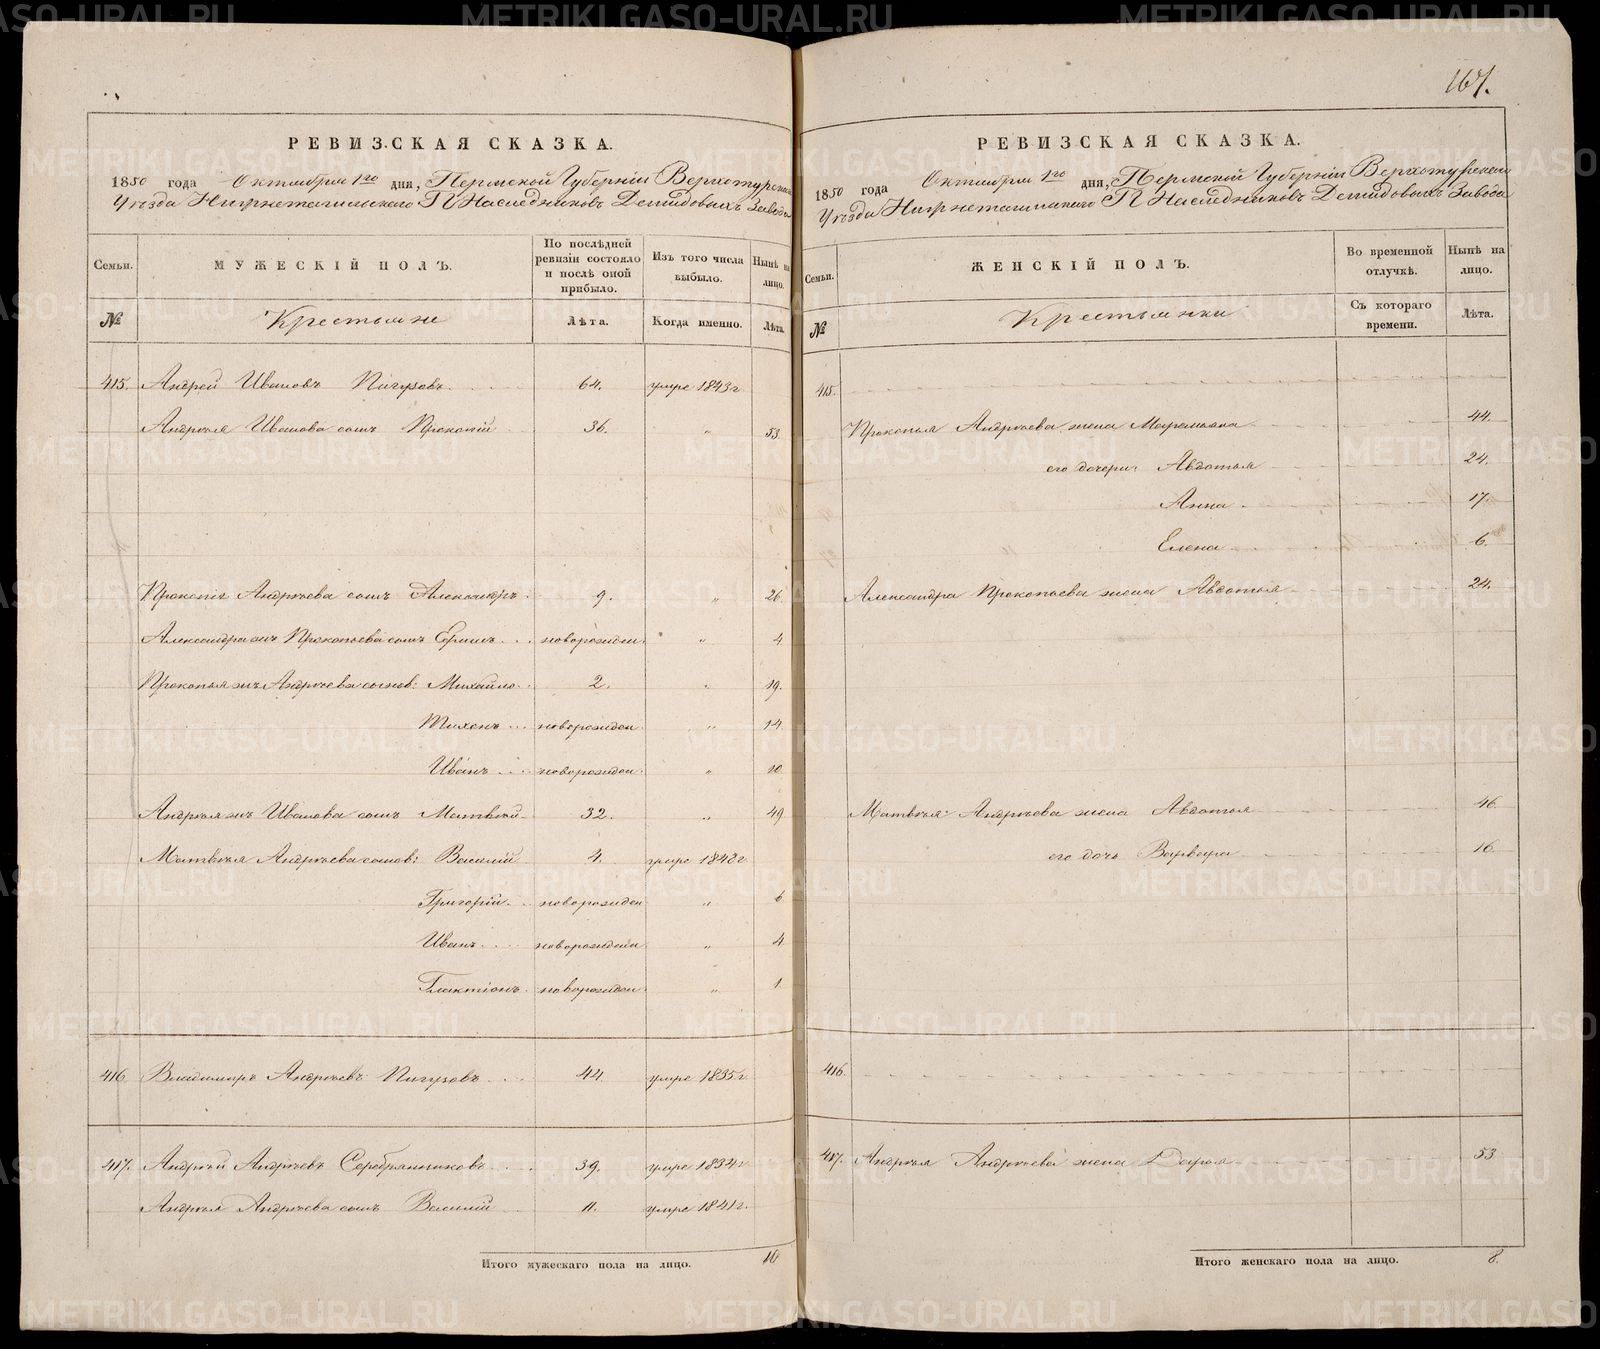 167.
РЕВИЗСКАЯ СКАЗКА.
1850 года Октября 1го дня, Пермской Губерніи Верхотурскаго
Уѣзда Нижнетагильскаго П. Наслѣдниковъ Демидовыхъ Завода
Семьи.
МУЖЕСКІЙ ПОЛЪ.
По послѣдней ревизіи состояло и послѣ оной прибыло.
Изъ того числа выбыло.
Нынѣ на лицо.
№
Крестьяне
Лѣта.
Когда именно.
Лѣта.
415. Андрей Ивановъ Пигузовъ 64. умре 1843 г
Андрея Иванова сынъ Прокопій 36. „ 53.
Прокопія Андреева сынъ Александръ 9. „ 26.
Александра жъ Прокопьева сынъ новорожден. „ 4
Прокопья жъ Андреева сынов: Михайло 2. „ 19.
Тихонъ новорожден „ 14
Иванъ новорожден. „ 10
Андрея жъ Иванова сынъ Матвѣй 32. „ 49
Матвѣя Андреева сынов: Василій 4. умре 1842 г
Григорій новорожден „ 6
Иванъ новорожден „ 4
Галактіонъ новорожден. „ 1
416. Владимиръ Андреевъ Пигузовъ 44. умре 1835 г
417. Андрей Андреевъ Серебрянниковъ 39. умре 1834 г
Андрея Андреева сынъ Василій 11. умре 1841 г.
Итого мужескаго пола на лицо. 10
РЕВИЗСКАЯ СКАЗКА.
1850 года Октября 1го дня, Пермской Губерніи Верхотурскаго
Уѣзда Нижнетагильскаго П. Наслѣдниковъ Демидовыхъ Завода
Семьи.
ЖЕНСКІЙ ПОЛЪ.
Во временной отлучкѣ.
Нынѣ на лицо.
№
Крестьянки
Съ котораго времени.
Лѣта.
415.
Прокопья Андреева жена 44.
его дочери: Авдотья 24.
Анна 17.
Елена 6.
Александра Прокопьева жена Авдотья 24.
Матвѣя Андреева жена Авдотья 46.
его дочь Варвара 16.
416.
417. Андрея Андреева жена Дарья 53
Итого женскаго пола на лицо. 8.
METRIKI.GASO-URAL.RU